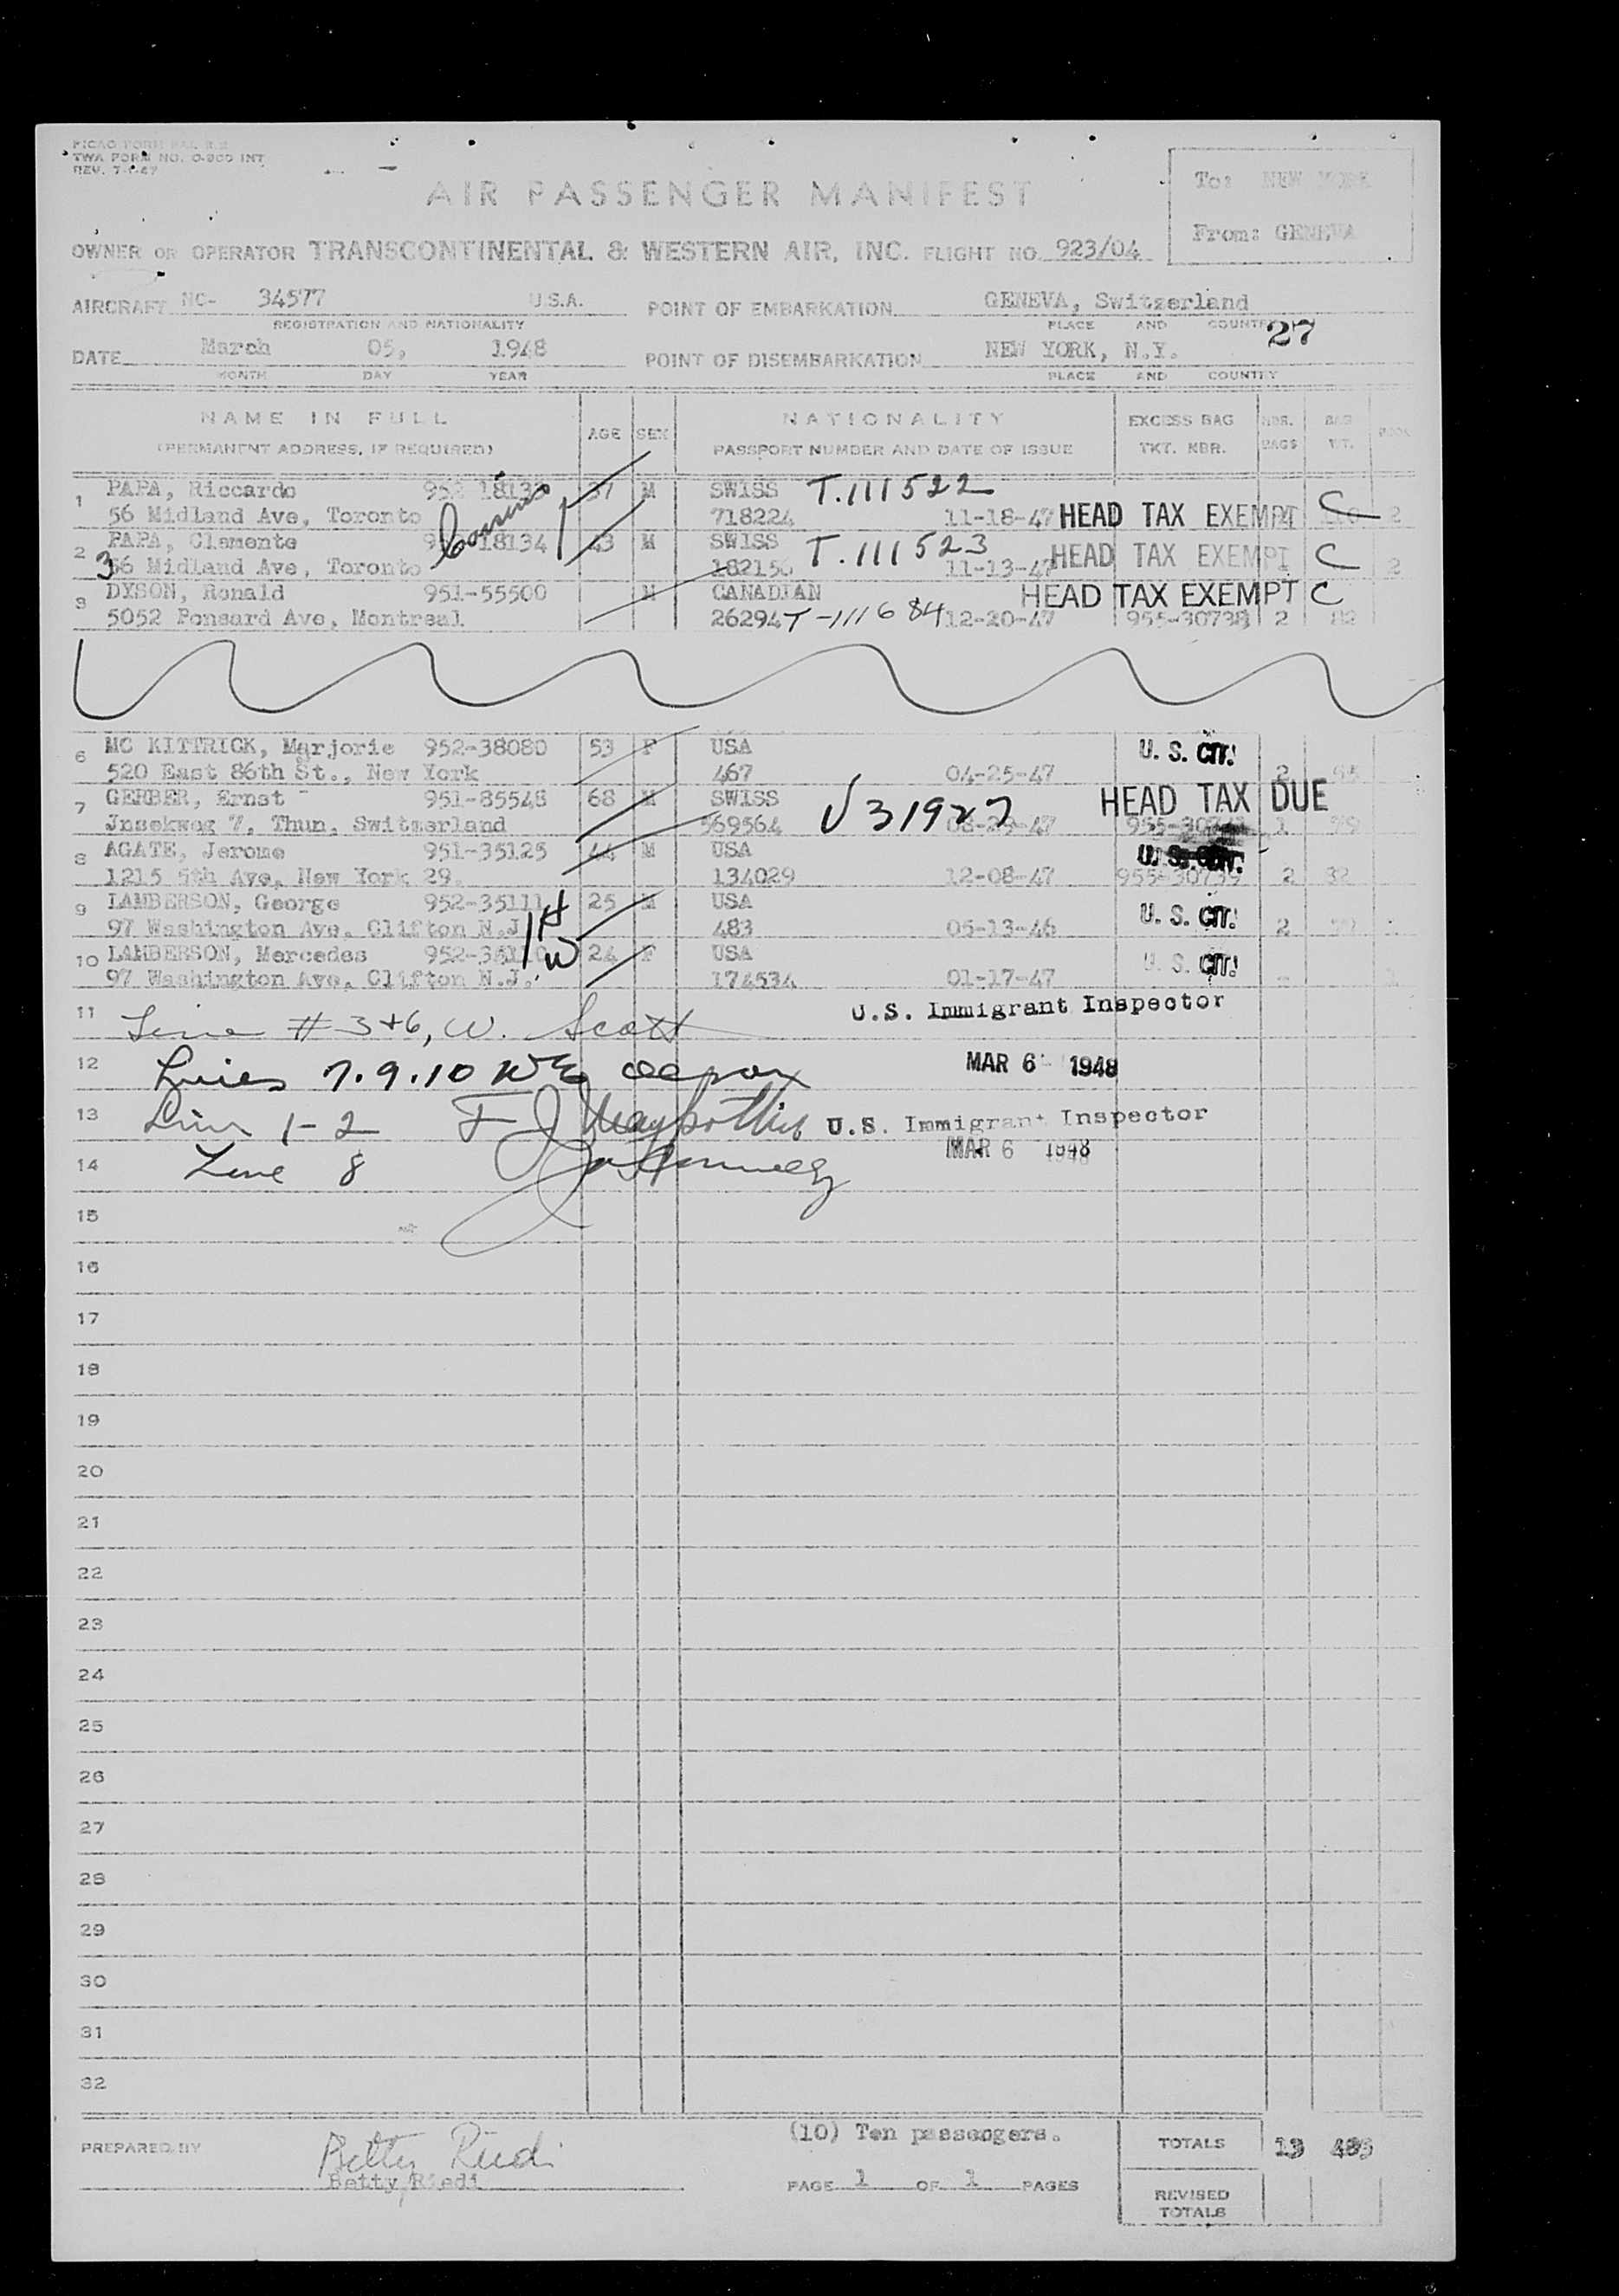 TWA FORM NO. 0-900 INT
REV. 7-1-47
AIR PASSENGER MANIFEST
To: NEW YORK
From: GENEVA
OWNER OR OPERATOR TRANSCONTINENTAL & WESTERN AIR, INC. FLIGHT NO. 923/04
AIRCRAFT NC- 34577 U.S.A. POINT OF EMBARKATION GENEVA, Switzerland
REGISTRATION AND NATIONALITY PLACE AND COUNTRY
27
DATE March 05, 1948 POINT OF DISEMBARKATION NEW YORK, N.Y.
MONTH DAY YEAR PLACE AND COUNTRY
NAME IN FULL AGE SEX NATIONALITY EXCESS BAG NBR. BAG
(PERMANENT ADDRESS, IF REQUIRED) PASSPORT NUMBER AND DATE OF ISSUE TKT. NBR. BAGS WT.
1 PAPA, Riccardo 37 M SWISS T.111522
56 Midland Ave, Toronto Cousins 718224 11-18-47 HEAD TAX EXEMPT C 2
2 PAPA, Clemente 18134 43 M SWISS T.111523
3 56 Midland Ave, Toronto 11-13-47 HEAD TAX EXEMPT C 2
3 DYSON, Ronald 951-55500 M CANADIAN HEAD TAX EXEMPT C
5052 Ponsard Ave, Montreal 26294 T-111684 12-20-47 955-30738 2 82
6 MC KITTRICK, Marjorie 952-38080 53 F USA U. S. CIT.
520 East 86th St., New York 467 04-25-47 2
7 GERBER, Ernst 951-85548 68 M SWISS V31927 HEAD TAX DUE
7, Thun, Switzerland 569564 1
8 AGATE, Jerome 951-35125 44 M USA U. S. CIT.
1215 5th Ave, New York 29. 134029 12-08-47 955-30739 2 32
9 LAMBERSON, George 952-35111 H 25 M USA U. S. CIT.
97 Washington Ave, Clifton N.J. 483 05-13-46 2
10 LAMBERSON, Mercedes W 24 F USA U. S. CIT.
97 Washington Ave, Clifton N.J. 174534 01-17-47
11 Line # 3+6, W. Scott U.S. Immigrant Inspector
12 Lines 7.9.10 MAR 6 1948
13 Line 1-2 U.S. Immigrant Inspector
MAR 6 1948
14 Line 8
15
16
17
18
19
20
21
22
23
24
25
26
27
28
29
30
31
32
(10) Ten passengers. TOTALS 13
PREPARED BY Betty Riedi
Betty Riedi PAGE 1 OF 1 PAGES
REVISED
TOTALS